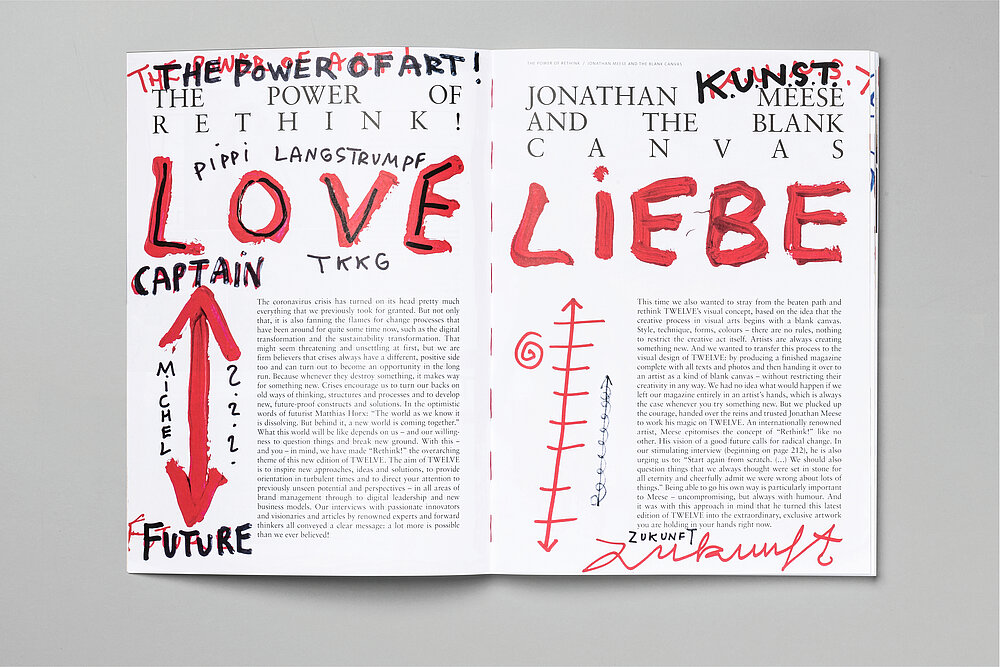 THE POWER OF ART!
THE POWER OF ART!
THE POWER OF
RETHINK!
PIPPI LANGSTRUMPF
LOVE
TKKG
CAPTAIN
MICHEL
????
FUTURE
The coronavirus crisis has turned on its head pretty much
everything that we previously took for granted. But not only
that, it is also fanning the flames for change processes that
have been around for quite some time now, such as the digital
transformation and the sustainability transformation. That
might seem threatening and unsettling at first, but we are
firm believers that crises always have a different, positive side
too and can turn out to become an opportunity in the long
run. Because whenever they destroy something, it makes way
for something new. Crises encourage us to turn our backs on
old ways of thinking, structures and processes and to develop
new, future-proof constructs and solutions. In the optimistic
words of futurist Matthias Horx: “The world as we know it
is dissolving. But behind it, a new world is coming together.”
What this world will be like depends on us – and our willing-
ness to question things and break new ground. With this –
and you – in mind, we have made “Rethink!” the overarching
theme of this new edition of TWELVE. The aim of TWELVE
is to inspire new approaches, ideas and solutions, to provide
orientation in turbulent times and to direct your attention to
previously unseen potential and perspectives – in all areas of
brand management through to digital leadership and new
business models. Our interviews with passionate innovators
and visionaries and articles by renowned experts and forward
thinkers all conveyed a clear message: a lot more is possible
than we ever believed!
THE POWER OF RETHINK / JONATHAN MEESE AND THE BLANK CANVAS
K.U.N.S.T.
JONATHAN MEESE
AND THE BLANK
CANVAS
LiEBE
This time we also wanted to stray from the beaten path and
rethink TWELVE’s visual concept, based on the idea that the
creative process in visual arts begins with a blank canvas.
Style, technique, forms, colours – there are no rules, nothing
to restrict the creative act itself. Artists are always creating
something new. And we wanted to transfer this process to the
visual design of TWELVE: by producing a finished magazine
complete with all texts and photos and then handing it over to
an artist as a kind of blank canvas – without restricting their
creativity in any way. We had no idea what would happen if we
left our magazine entirely in an artist’s hands, which is always
the case whenever you try something new. But we plucked up
the courage, handed over the reins and trusted Jonathan Meese
to work his magic on TWELVE. An internationally renowned
artist, Meese epitomises the concept of “Rethink!” like no
other. His vision of a good future calls for radical change. In
our stimulating interview (beginning on page 212), he is also
urging us to: “Start again from scratch. (...) We should also
question things that we always thought were set in stone for
all eternity and cheerfully admit we were wrong about lots of
things.” Being able to go his own way is particularly important
to Meese – uncompromising, but always with humour. And
it was with this approach in mind that he turned this latest
edition of TWELVE into the extraordinary, exclusive artwork
you are holding in your hands right now.
ZUKUNFT
Zukunft